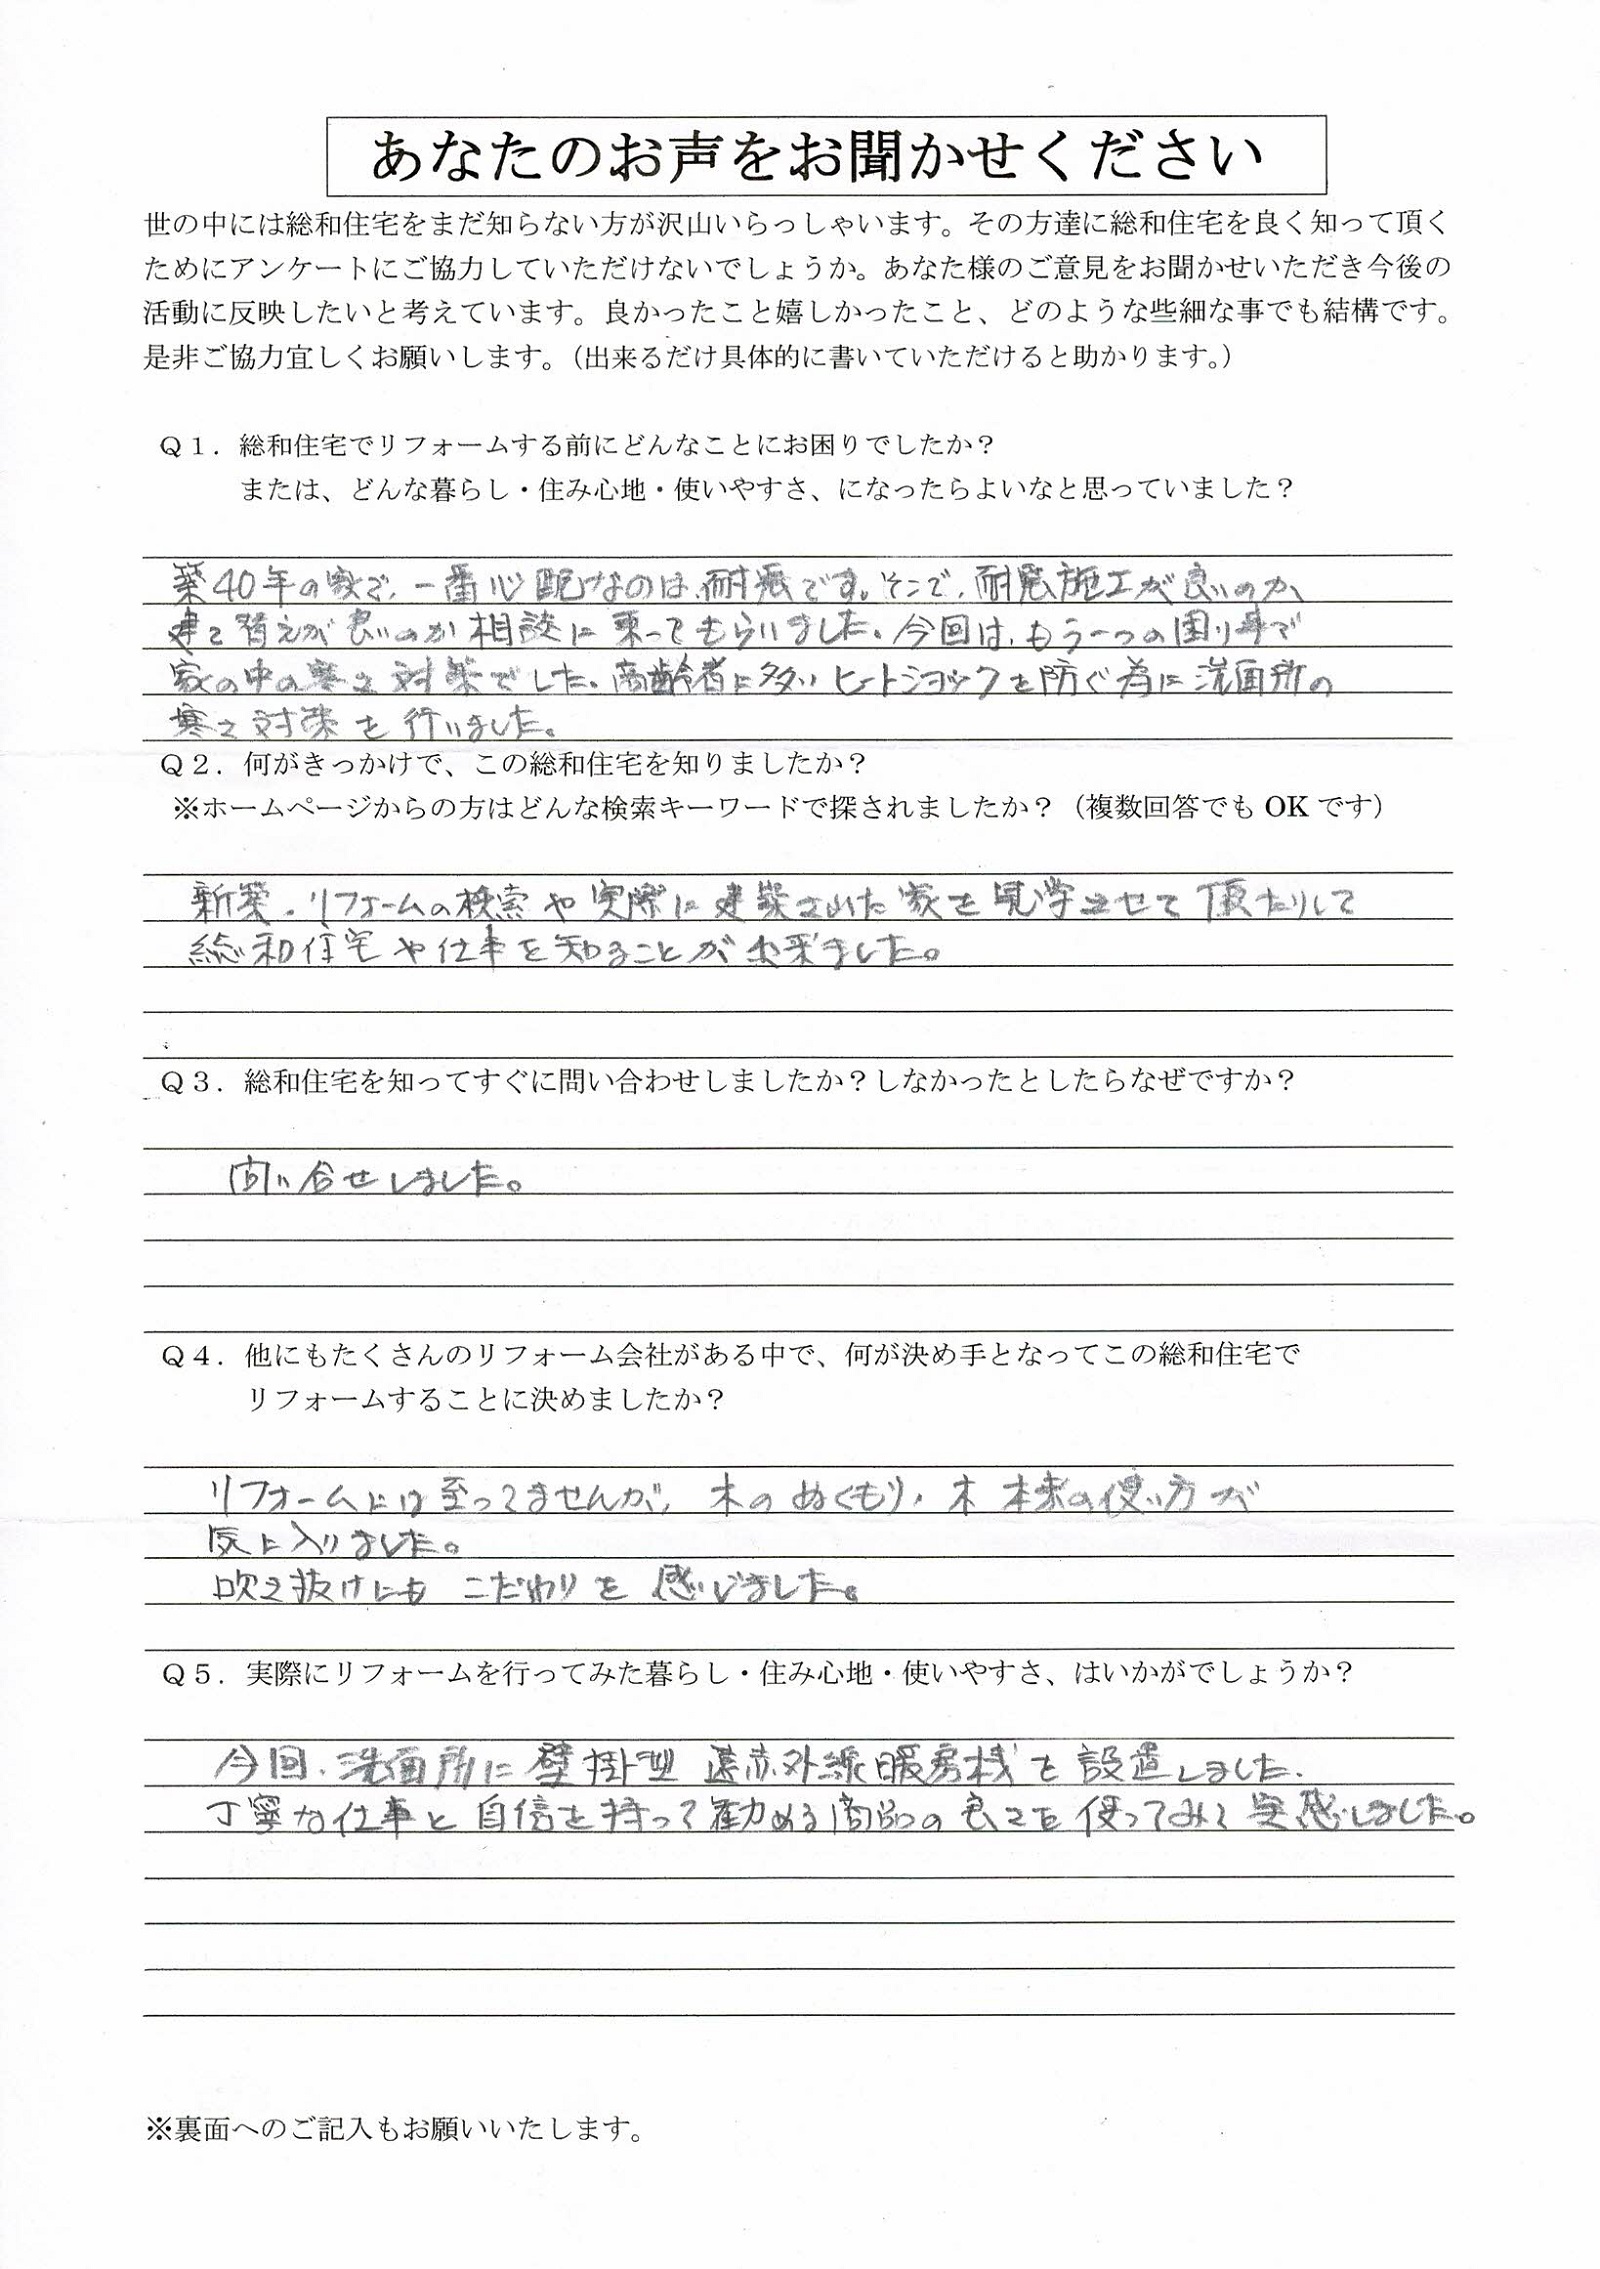 あなたのお声をお聞かせください
世の中には総和住宅をまだ知らない方が沢山いらっしゃいます。その方達に総和住宅を良く知って頂く
ためにアンケートにご協力していただけないでしょうか。あなた様のご意見をお聞かせいただき今後の
活動に反映したいと考えています。良かったこと嬉しかったこと、どのような些細な事でも結構です。
是非ご協力宜しくお願いします。（出来るだけ具体的に書いていただけると助かります。）
Ｑ１．総和住宅でリフォームする前にどんなことにお困りでしたか？
または、どんな暮らし・住み心地・使いやすさ、になったらよいなと思っていました？
築40年の家で、一番心配なのは、耐震です。そこで、耐震施工が良いのか、
建て替えが良いのか相談に乗ってもらいました。今回は、もう一つの困り事で
家の中の寒さ対策でした。高齢者に多いヒートショックを防ぐ為に洗面所の
寒さ対策を行いました。
Ｑ２．何がきっかけで、この総和住宅を知りましたか？
※ホームページからの方はどんな検索キーワードで探されましたか？（複数回答でも OK です）
新築．リフォームの検索や実際に建築された家を見学させて頂たりして
総和住宅や仕事を知ることが出来ました。
Ｑ３．総和住宅を知ってすぐに問い合わせしましたか？しなかったとしたらなぜですか？
問い合せしました。
Ｑ４．他にもたくさんのリフォーム会社がある中で、何が決め手となってこの総和住宅で
リフォームすることに決めましたか？
リフォームには至ってませんが、木のぬくもり、木本来の使い方が
気に入りました。
吹き抜けにもこだわりを感じました。
Ｑ５．実際にリフォームを行ってみた暮らし・住み心地・使いやすさ、はいかがでしょうか？
今回、洗面所に壁掛型遠赤外線暖房機を設置しました．
丁寧な仕事と自信を持って勧める商品の良さを使ってみて実感しました。
※裏面へのご記入もお願いいたします。